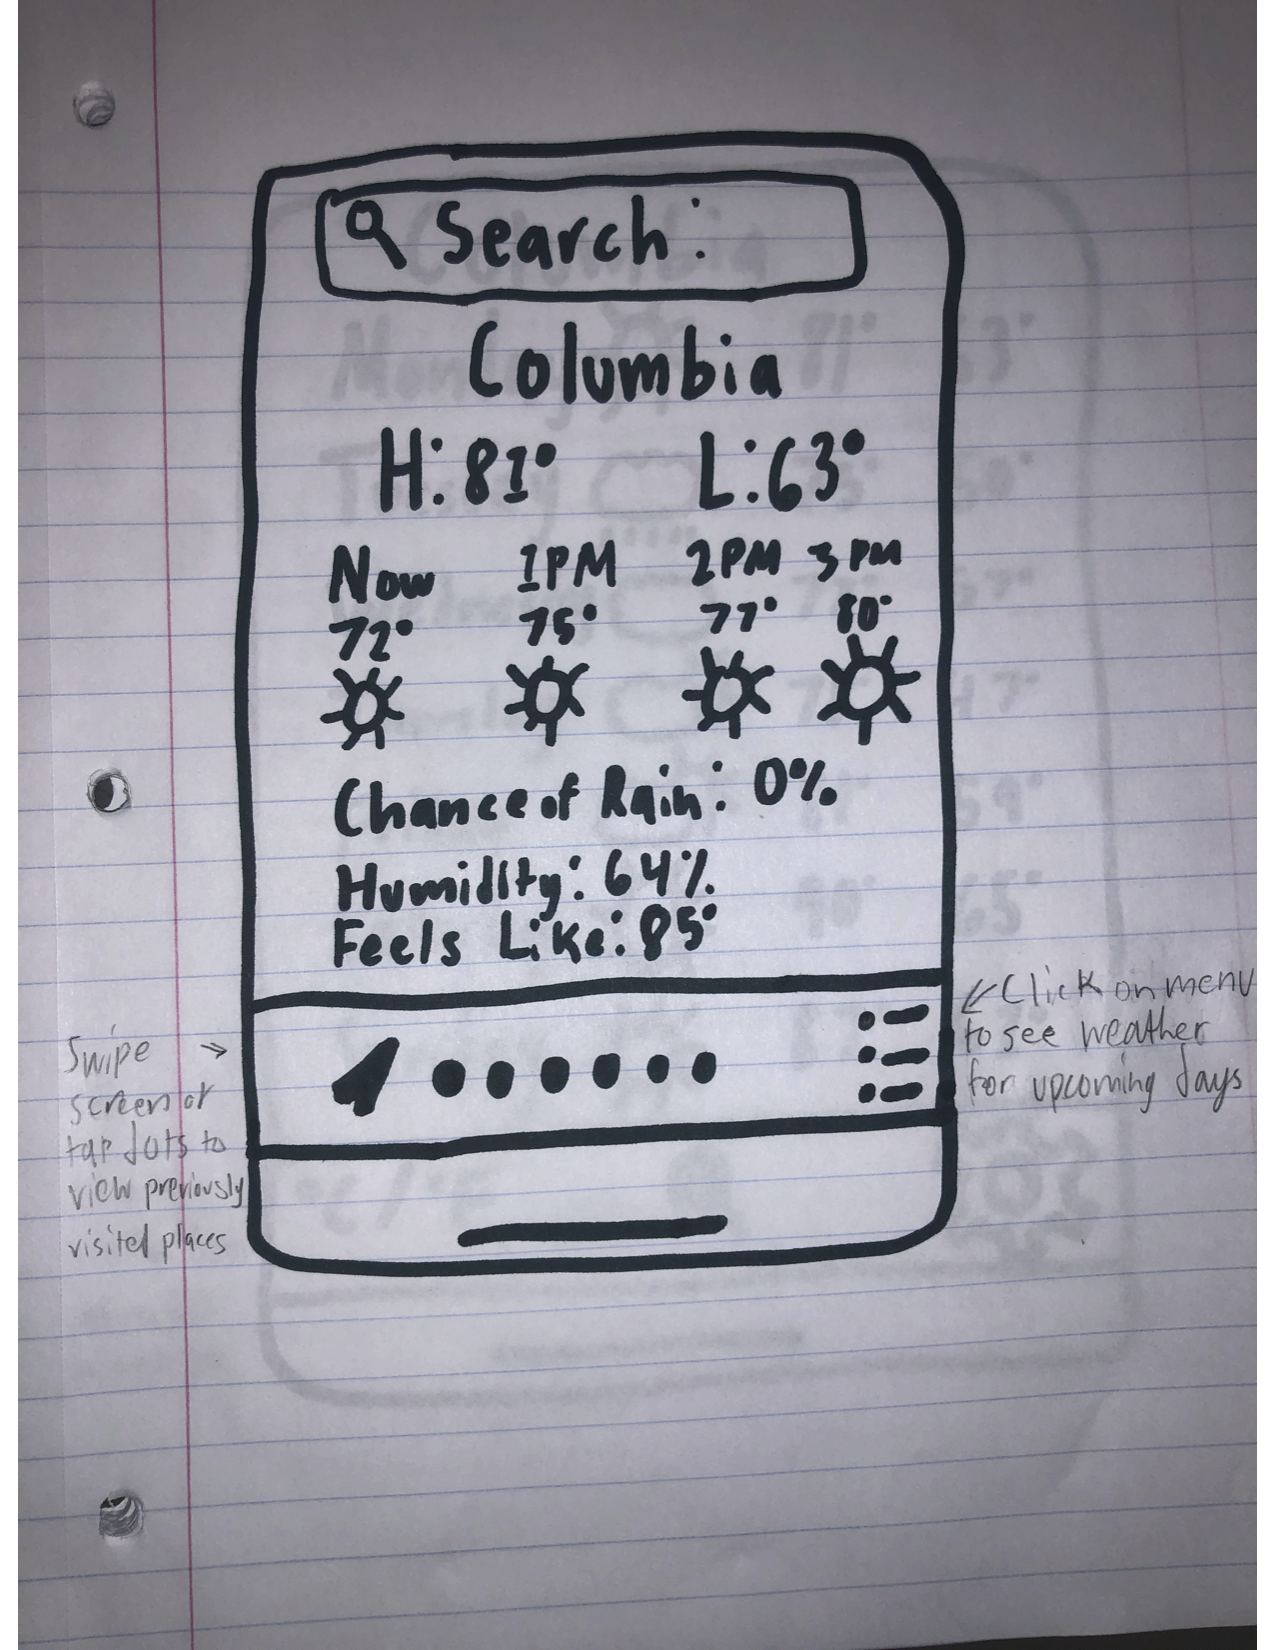 Search:
Columbia
H:81° L:63°
Now 1PM 2PM 3PM
72° 75° 77° 80°
Chance of Rain: 0%
Humidity: 64%
Feels Like: 85°
Swipe
screen or
tap dots to
view previously
visited places
Click on menu
to see weather
for upcoming days